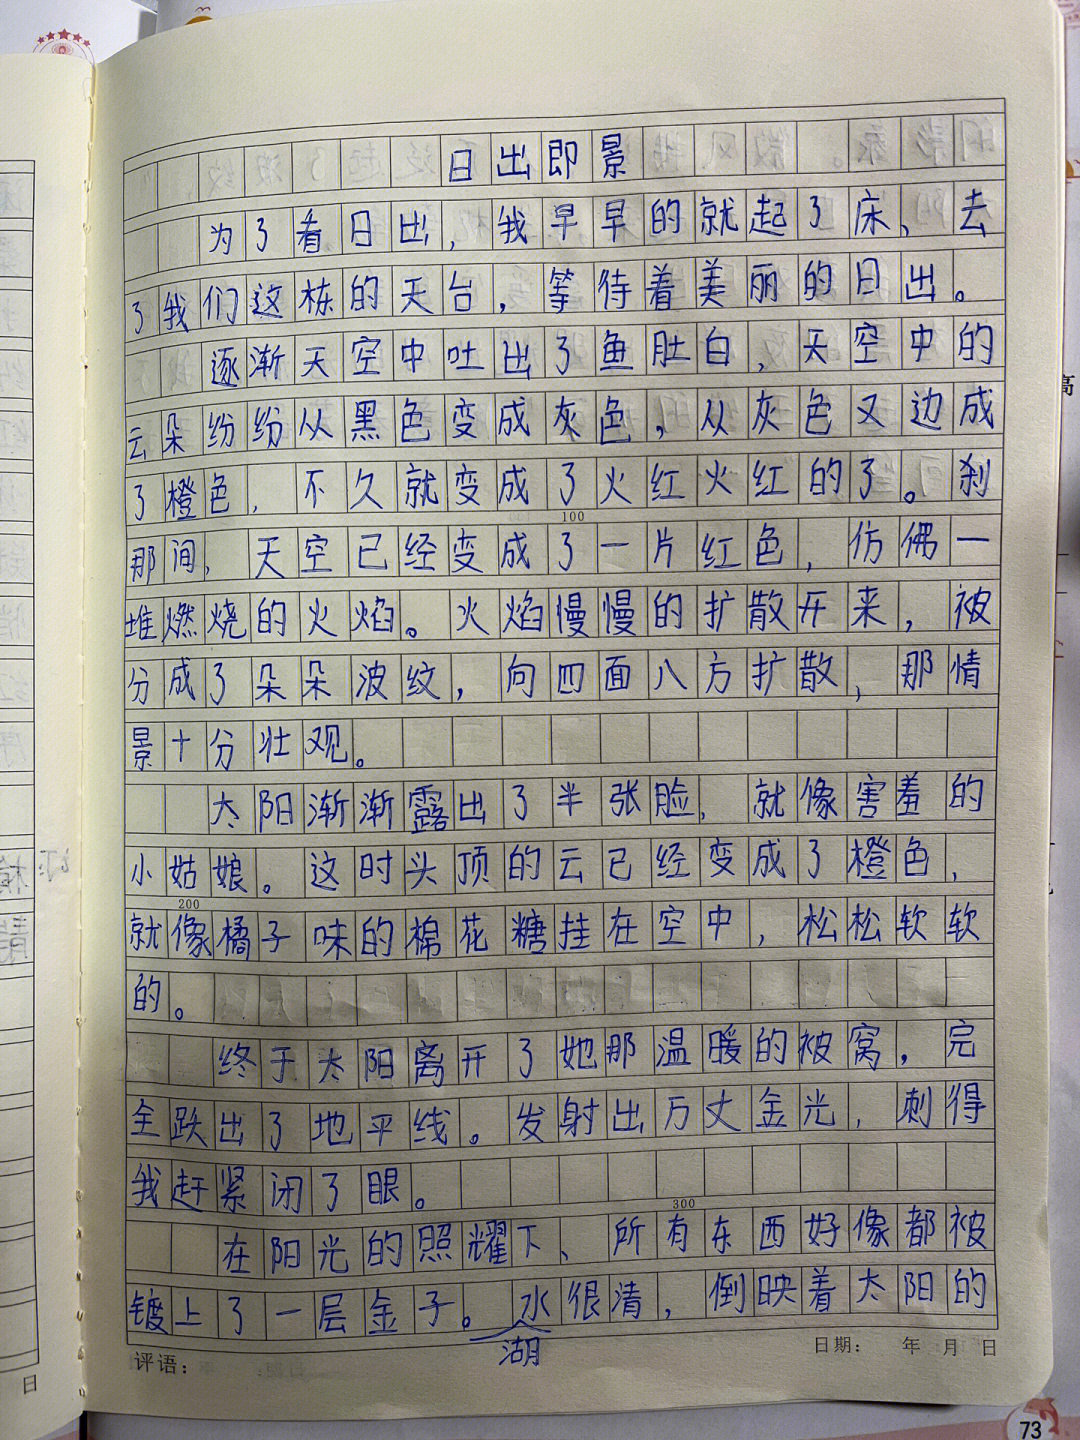 日出即景
为了看日出，我早早的就起了床、去
了我们这栋的天台，等待着美丽的日出。
逐渐天空中吐出了鱼肚白，天空中的
云朵纷纷从黑色变成灰色，从灰色又边成
了橙色，不久就变成了火红火红的了。刹
100
那间，天空已经变成了一片红色，仿佛一
堆燃烧的火焰。火焰慢慢的扩散开来，被
分成了朵朵波纹，向四面八方扩散，那情
景十分壮观。
太阳渐渐露出了半张脸，就像害羞的
小姑娘。这时头顶的云已经变成了橙色，
200
就像橘子味的棉花糖挂在空中，松松软软
的。
终于太阳离开了她那温暖的被窝，完
全跃出了地平线。发射出万丈金光，刺得
我赶紧闭了眼。
300
在阳光的照耀下、所有东西好像都被
镀上了一层金子。水很清，倒映着太阳的
湖
评语：
日期： 年 月 日
日
高
73